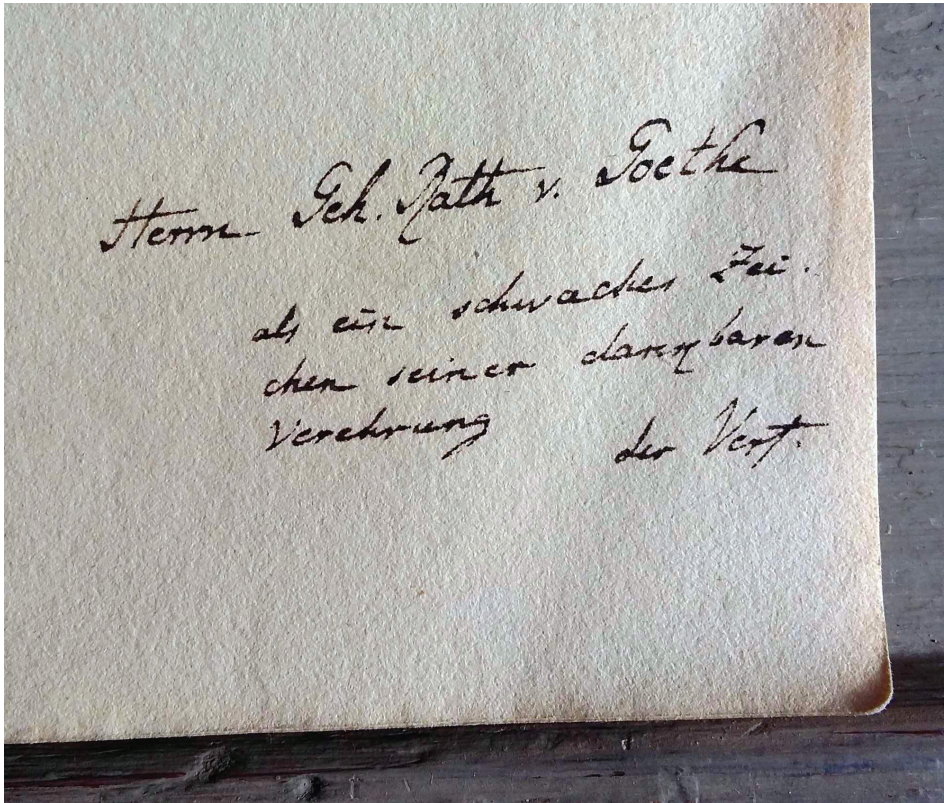 Herrn Geh. Rath v. Goethe
als ein schwaches Zei-
chen seiner dankbaren
Verehrung
der Verf.